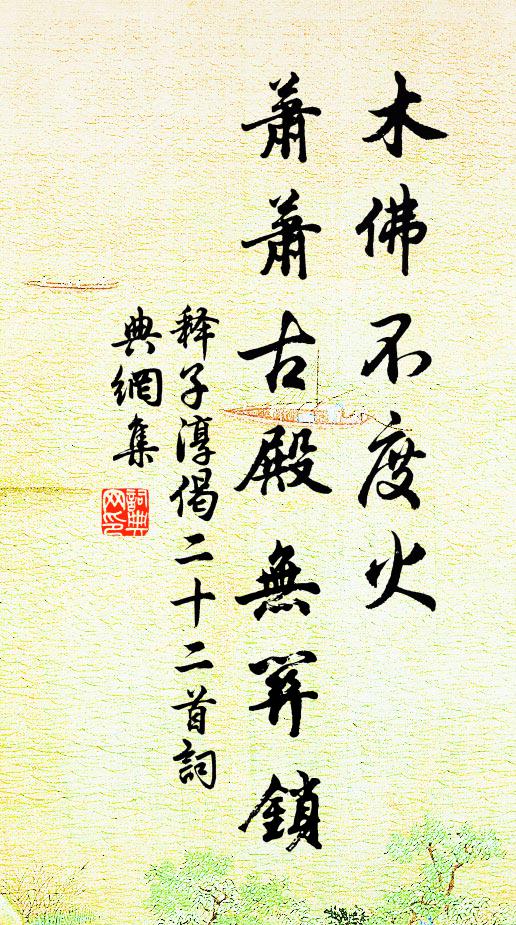 木佛不度火
蕭蕭古殿無關鎖
释子淳偈二十二首詞
典網集
詞典
网印